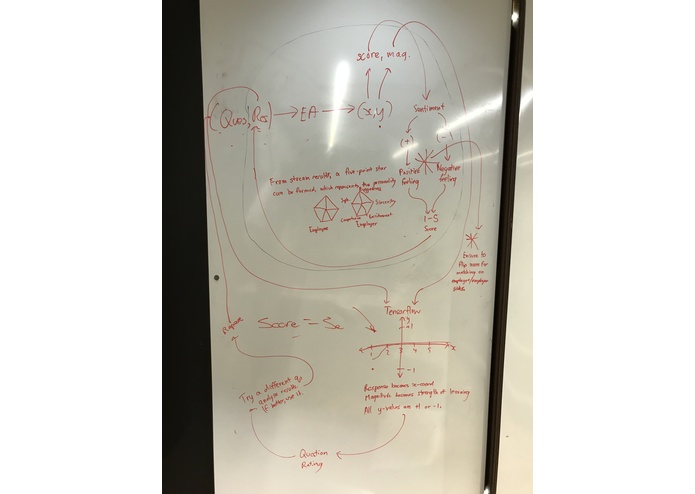 score, mag.
(Ques, Res) → EA → (x, y)
Sentiment
(+)
(-)
Positive feeling
Negative feeling
From stream results, a five-point star
can be formed, which represents five personality
Sincerity
Excitement
Employee
Employer
1-5
Score
Failure to
flip score for
matching on
employer/employee
sides
Tensorflow
y
+1
x
1 2 3 4 5
-1
Repeat
Score = Se
Try a different q,
analyze results.
If better, use it.
Response becomes x-coord
Magnitude becomes strength of learning
All y-values are +1 or -1.
Question
Rating